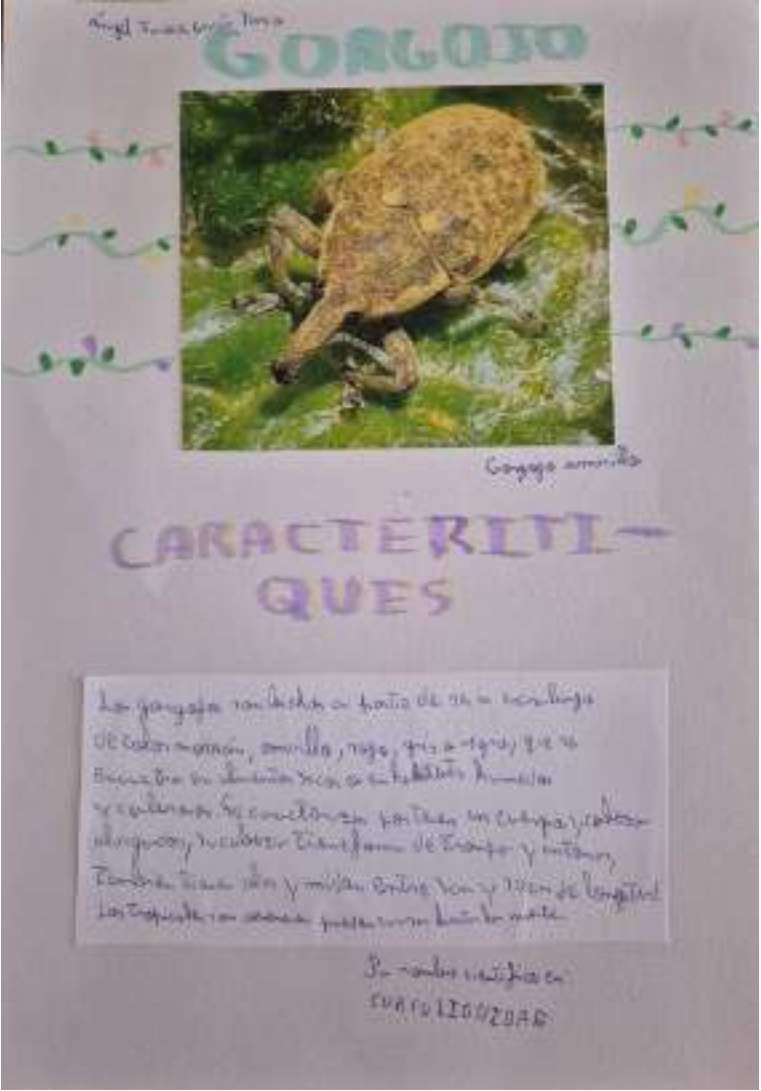 Ángel
GORGOJO
Gorgojo amarillo
CARACTERITI-
QUES
Los gorgojos son bichos a partir de
de color marrón, amarillo, rojo, gris o negro, que se
encuentra en alimentos secos o en hábitats húmedos
y calurosos. Se caracterizan por tener un cuerpo y cabeza
alargados, su cabeza tiene forma de trompa y antenas,
También tiene alas y miden entre 1cm y de longitud
Los tropicales son
Su nombre científico es:
CURCULIONIDAE